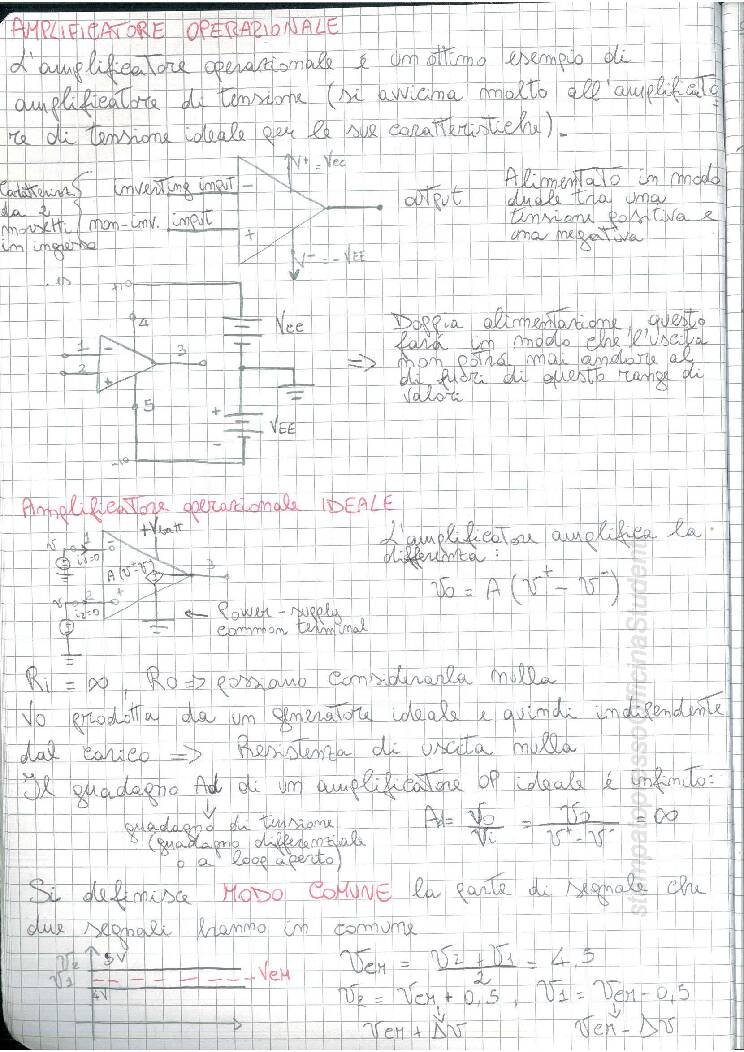 AMPLIFICATORE OPERAZIONALE
L'amplificatore operazionale è un ottimo esempio di
amplificatore di tensione (si avvicina molto all'amplificato
re di tensione ideale per le sue caratteristiche).
V+ = Vcc
inverting input
output
non-inv. input
V- = -VEE
da 2
morsetti
in ingresso
Alimentato in modo
duale tra una
tensione positiva e
una negativa
4
1
2
3
5
VCC
VEE
+
-
⇒
Doppia alimentazione, questo
farà in modo che l'uscita
non potrà mai andare al
di fuori di questo range di
valori
Amplificatore operazionale IDEALE
+Vbatt
1
i1=0
A(v+-v-)
3
2
i2=0
Power-supply
common terminal
L'amplificatore amplifica la
differenza:
vo = A (v+ - v-)
Ri = ∞, Ro ⇒ possano considerarla nulla
Vo prodotta da un generatore ideale e quindi indipendente
dal carico ⇒ Resistenza di uscita nulla
Il guadagno Ad di un amplificatore OP ideale é infinito:
guadagno di tensione
(guadagno differenziale
o a loop aperto)
Ad = vo/vi = vo/(v+ - v-) = ∞
Si definisce MODO COMUNE la parte di segnale che
due segnali hanno in comune
V2
V1
5V
4V
VCM
VCM = (V2 + V1)/2 = 4,5
V2 = VCM + 0,5, V1 = VCM - 0,5
VCM + ΔV
VCM - ΔV
stampatopressoOfficinaStudenti